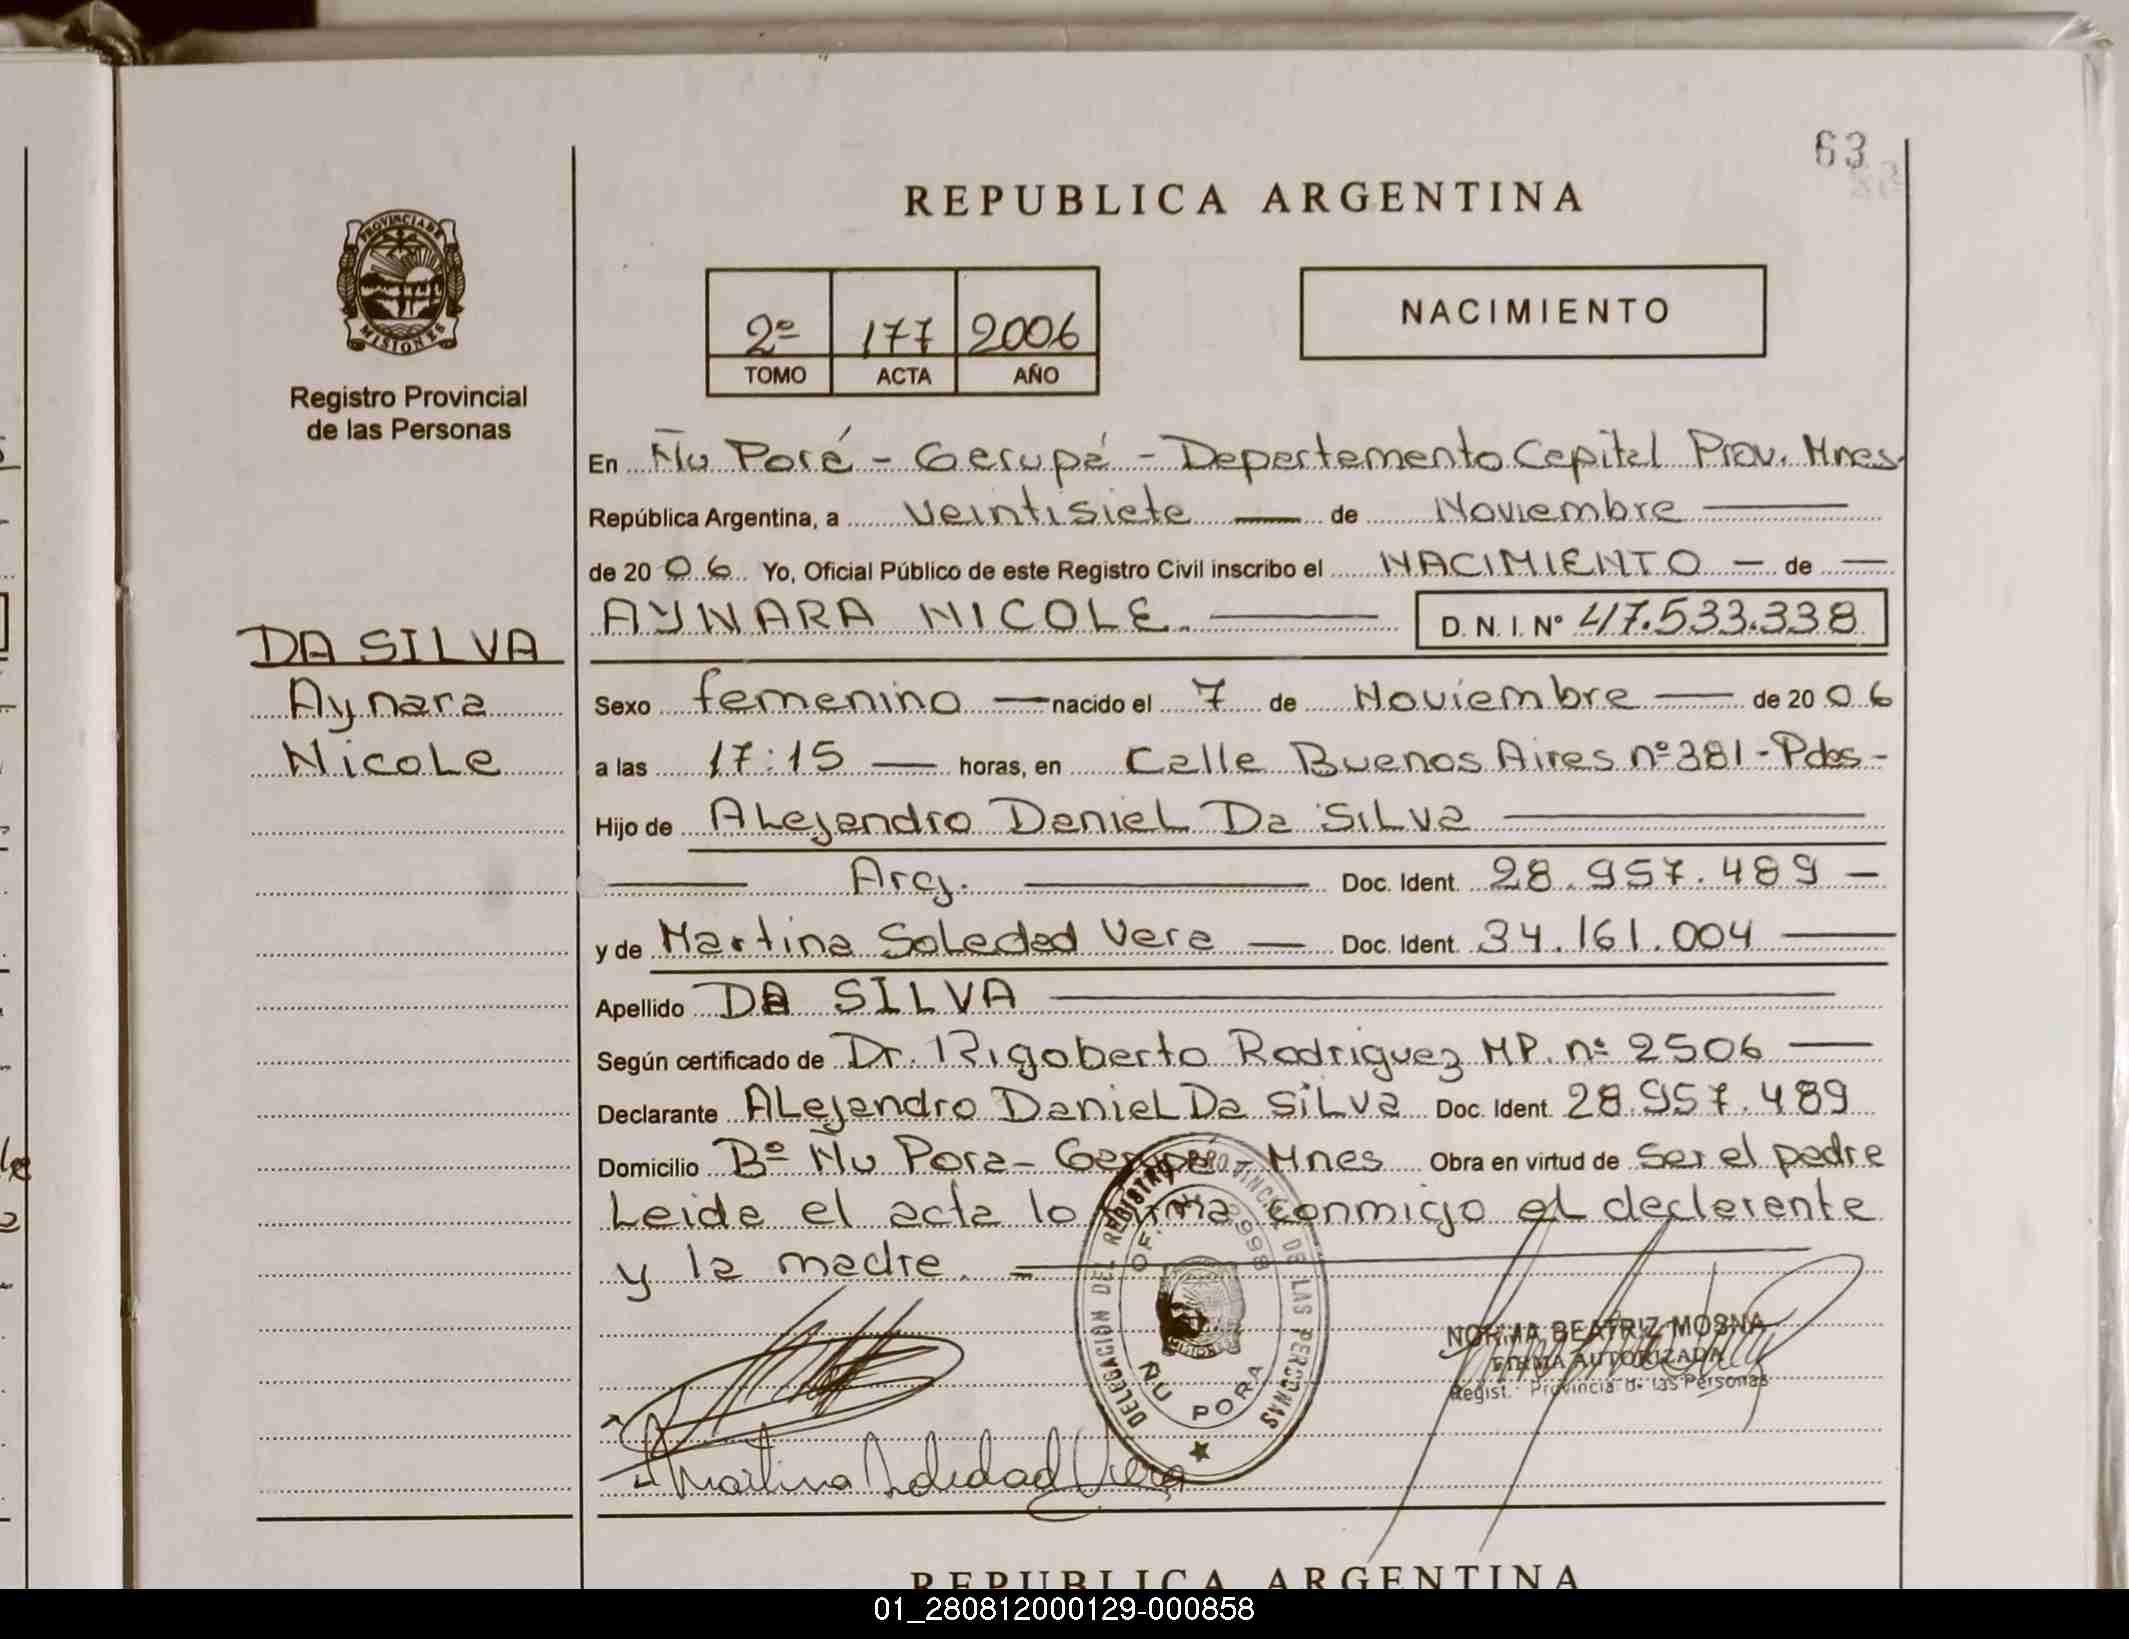 63
REPUBLICA ARGENTINA
PROVINCIA DE MISIONES
2º 177 2006
TOMO ACTA AÑO
NACIMIENTO
Registro Provincial
de las Personas
En Ñu Porá - Garupá - Departamento Capital Prov. Mnes.
República Argentina, a veintisiete de Noviembre
de 2006 Yo, Oficial Público de este Registro Civil inscribo el NACIMIENTO de
AYNARA NICOLE. D.N.I. Nº 47.533.338
DA SILVA
Aynara
Nicole
Sexo femenino nacido el 7 de Noviembre de 2006
a las 17:15 horas, en Calle Buenos Aires nº 381 - Pdas -
Hijo de Alejandro Daniel Da Silva
Arg. Doc. Ident. 28.957.489
y de Martina Soledad Vera Doc. Ident. 34.161.004
Apellido DA SILVA
Según certificado de Dr. Rigoberto Rodriguez MP. nº 2506
Declarante Alejandro Daniel Da Silva Doc. Ident. 28.957.489
Domicilio Bº Ñu Pora - Garupá - Mnes Obra en virtud de ser el padre
Leida el acta lo firma conmigo el declarante
y la madre.
DELEGACION DEL REGISTRO PROVINCIAL DE LAS PERSONAS
ÑU PORA
NORMA BEATRIZ MOSNA
FIRMA AUTORIZADA
Regist. Provincial de las Personas
Martina Soledad Vera
REPUBLICA ARGENTINA
01_280812000129-000858